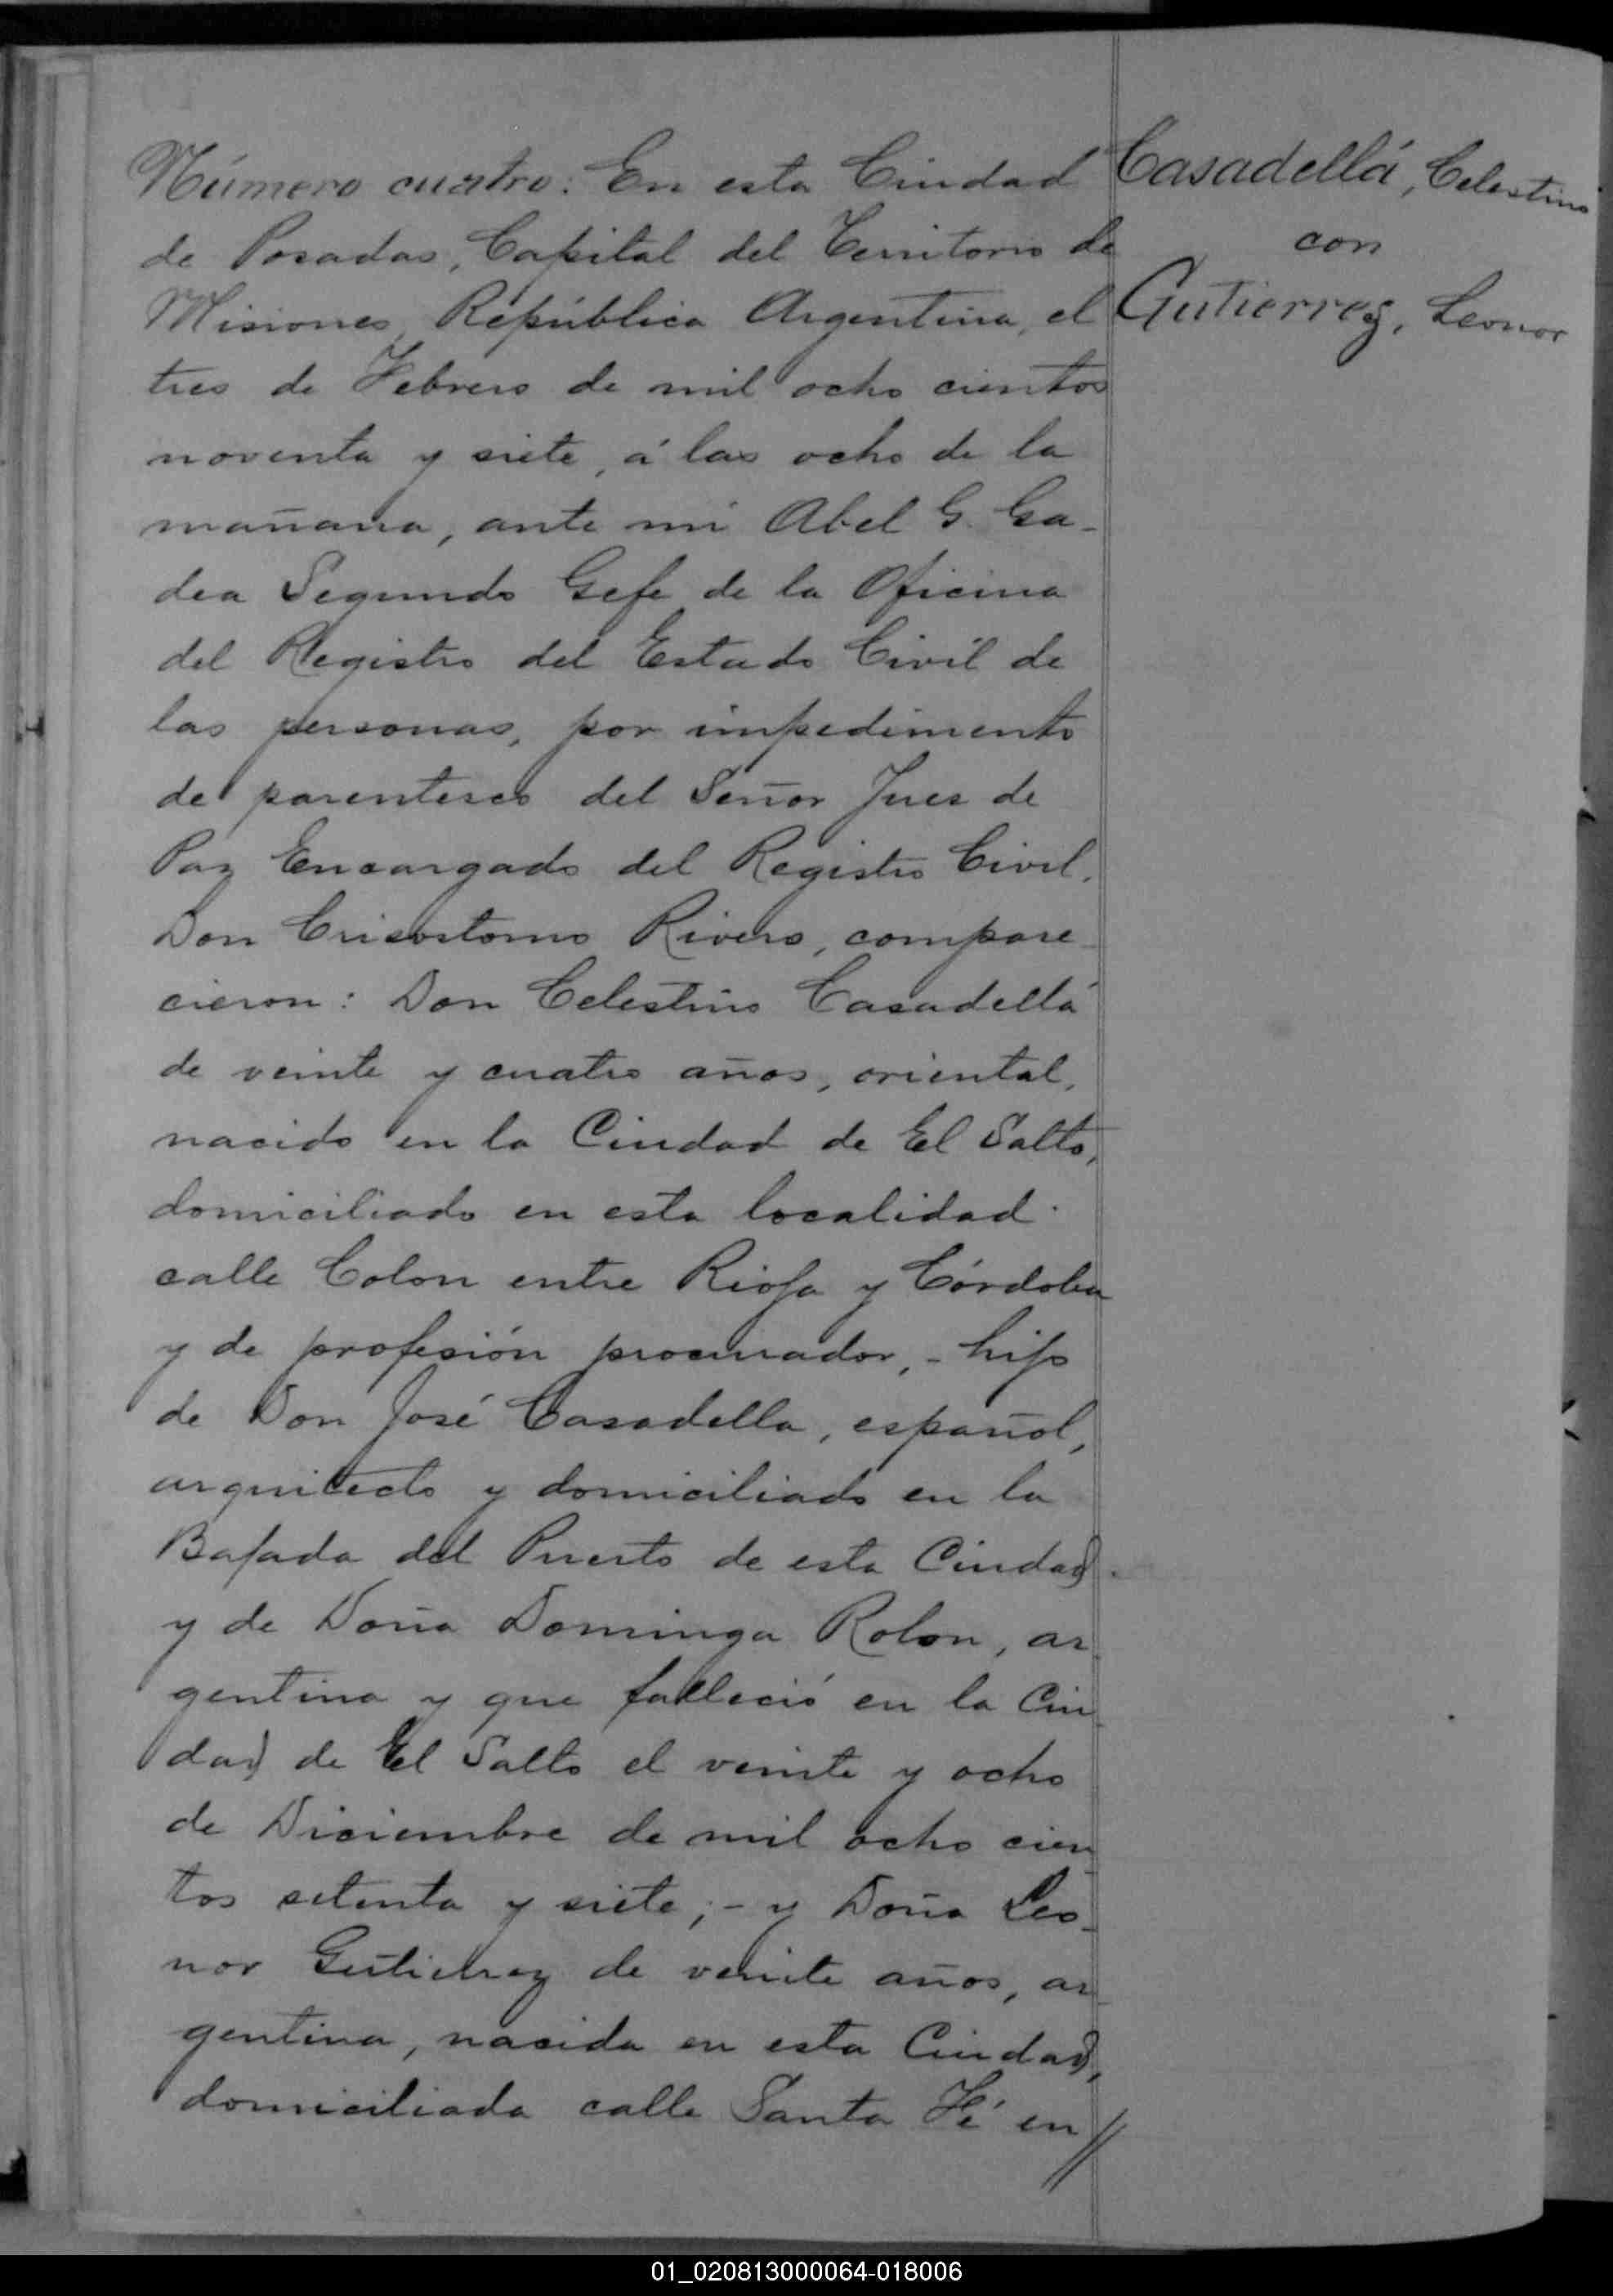 Número cuatro: En esta Ciudad
de Posadas, Capital del Territorio de
Misiones, República Argentina, el
tres de Febrero de mil ocho cientos
noventa y siete, á las ocho de la
mañana, ante mi Abel G. Ga-
dea Segundo Gefe de la Oficina
del Registro del Estado Civil de
las personas, por impedimento
de parentesco del Señor Juez de
Paz Encargado del Registro Civil,
Don Crisostomo Rivero, compare-
cieron: Don Celestino Casadellá
de veinte y cuatro años, oriental,
nacido en la Ciudad de El Salto,
domiciliado en esta localidad.
calle Colon entre Rioja y Córdoba
y de profesión procurador, - hijo
de Don José Casadella, español,
arquitecto y domiciliado en la
Bajada del Puerto de esta Ciudad.
y de Doña Dominga Rolon, ar-
gentina y que falleció en la Ciu-
dad de El Salto el veinte y ocho
de Diciembre de mil ocho cien-
tos setenta y siete; - y Doña Leo-
nor Gutierrez de veinte años, ar-
gentina, nacida en esta Ciudad,
domiciliada calle Santa Fé en//
Casadellá, Celestino
con
Gutierrez, Leonor
01_020813000064-018006